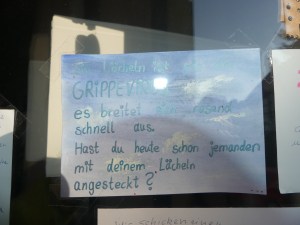 Lächeln
GRIPPE
es breitet sich rasand
schnell aus.
Hast du heute schon jemanden
mit deinem Lächeln
angesteckt?